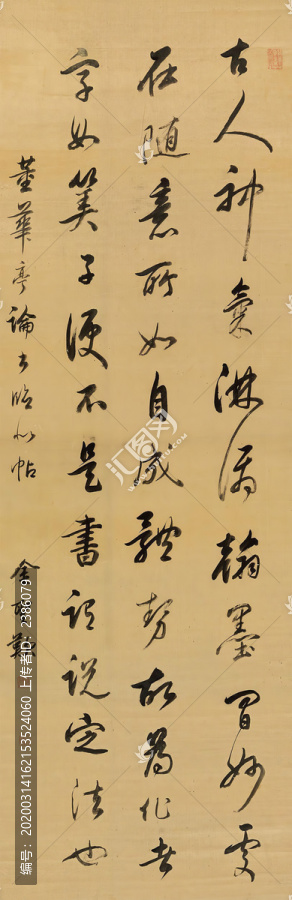 古人神氣淋漓翰墨間妙處
在隨意所如自成體勢故為作者
字如算子便不是書謂說定法也
董華亭論書臨帖
汇图网
编号：20200314162153524060 上传者ID:2386079